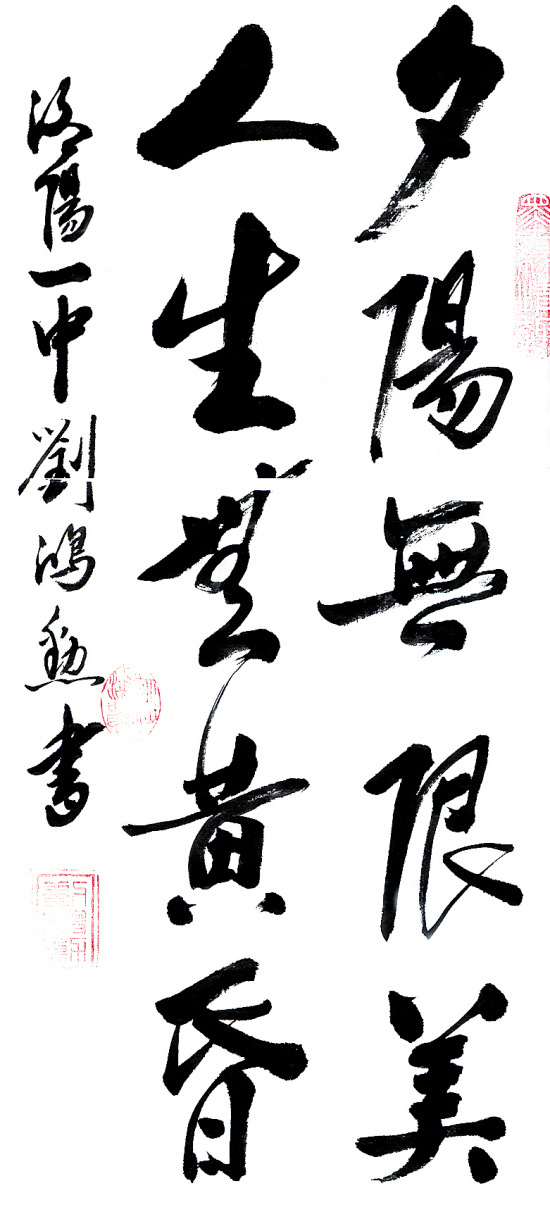 夕陽無限美
人生無黃昏
洛陽一中劉鴻勳書